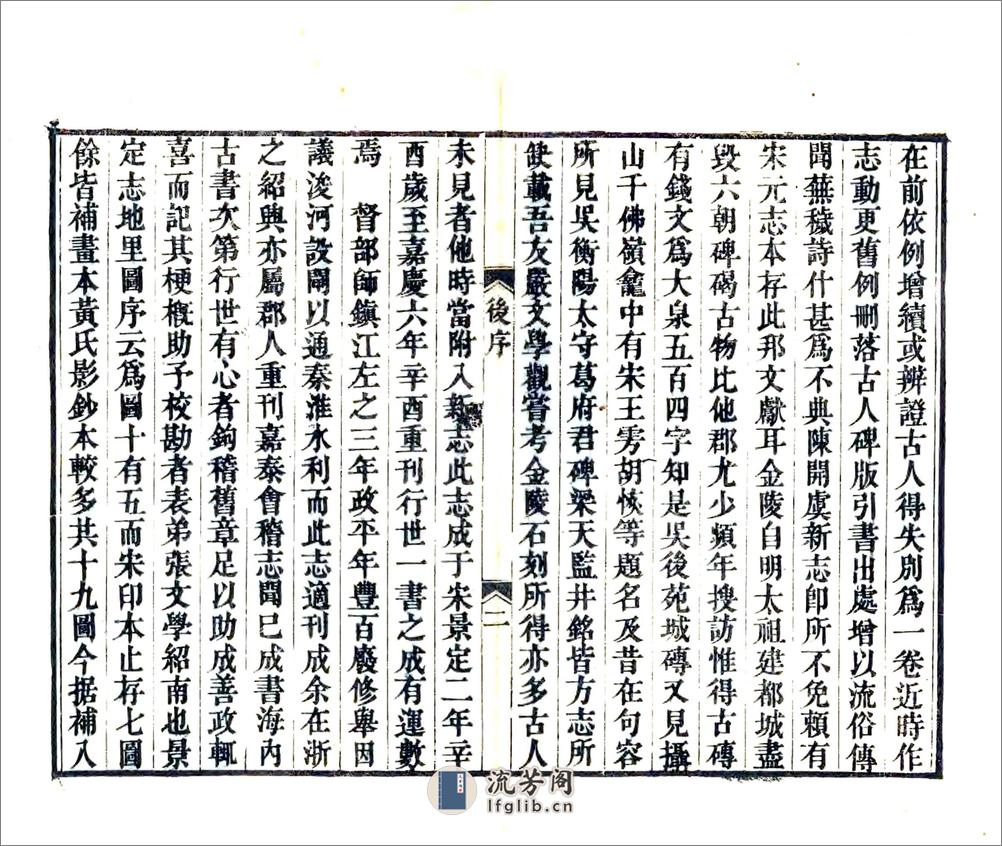 在前依例增續或辨證古人得失別爲一卷近時作
志動更舊例刪落古人碑版引書出處增以流俗傳
聞蕪穢詩什甚爲不典陳開虞新志卽所不免賴有
宋元志本存此邦文獻耳金陵自明太祖建都城盡
毀六朝碑碣古物比他郡尤少頻年搜訪惟得古磚
有錢文爲大泉五百四字知是吳後苑城磚又見攝
山千佛嶺龕中有宋王雱胡恢等題名及昔在句容
所見吳衡陽太守葛府君碑梁天監井銘皆方志所
缺載吾友嚴文學觀嘗考金陵石刻所得亦多古人
後序
二
未見者他時當附入新志此志成于宋景定二年辛
酉歲至嘉慶六年辛酉重刊行世一書之成有運數
焉　督部師鎮江左之三年政平年豐百廢修舉因
議浚河設閘以通秦淮水利而此志適刊成余在浙
之紹興亦屬郡人重刊嘉泰會稽志聞已成書海內
古書次第行世有心者鉤稽舊章足以助成善政輒
喜而記其梗概助予校勘者表弟張文學紹南也景
定志地里圖序云爲圖十有五而宋印本止存七圖
餘皆補畫本黃氏影鈔本較多共十九圖今据補入
流芳阁
lfglib.cn